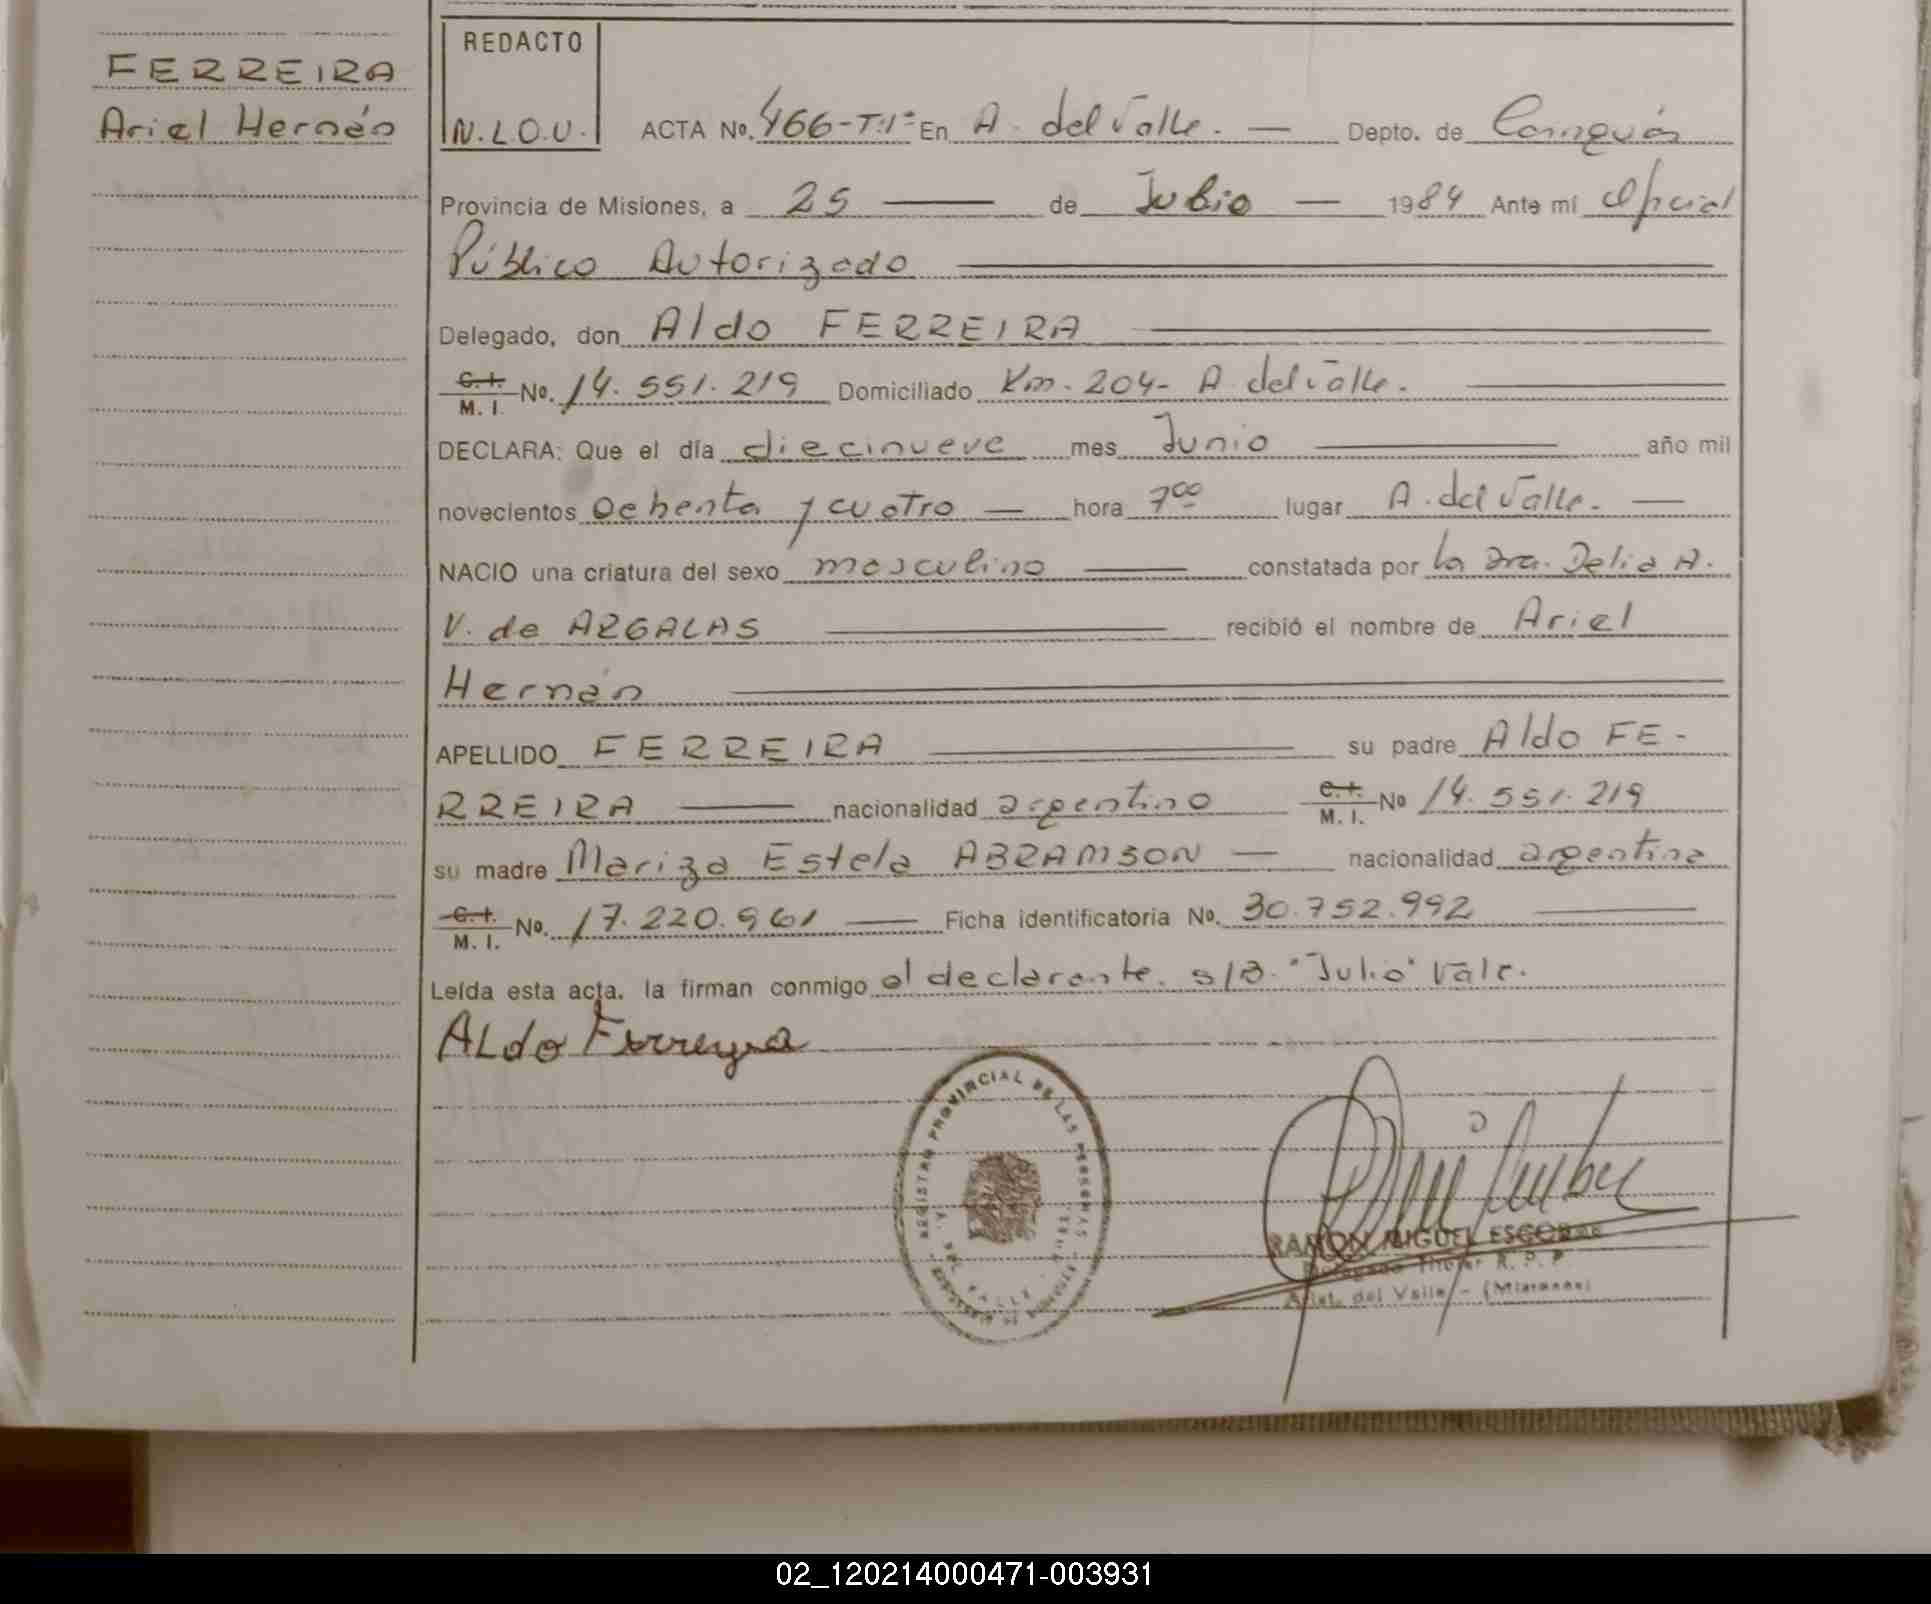 FERREIRA
Ariel Hernán
REDACTO
N.L.O.U.
ACTA No. 466-T:1º En A. del Valle. — Depto. de Cainguás
Provincia de Misiones, a 25 — de Julio — 1984 Ante mí Oficial
Público Autorizado
Delegado, don Aldo FERREIRA
C.I. M. I. No. 14.551.219 Domiciliado Km. 204- A. del Valle.
DECLARA: Que el día diecinueve mes Junio — año mil
novecientos Ochenta y cuatro — hora 7oo lugar A. del Valle. —
NACIO una criatura del sexo masculino — constatada por la Dra. Delia A.
V. de ARGALAS — recibió el nombre de Ariel
Hernán
APELLIDO FERREIRA — su padre Aldo FE-
RREIRA — nacionalidad argentino C.I. M. I. No 14.551.219
su madre Mariza Estela ABRAMSON — nacionalidad argentina
C.I. M. I. No. 17.220.961 — Ficha identificatoria No. 30.752.992
Leída esta acta, la firman conmigo el declarante. s/B. "Julio" Vale.
ALdo Ferreyra
REGISTRO PROVINCIAL DE LAS PERSONAS
DEL VALLE
RAMON MIGUEL ESCOBAR
Delegado Titular R. P. P.
Arist. del Valle - (Misiones)
02_120214000471-003931